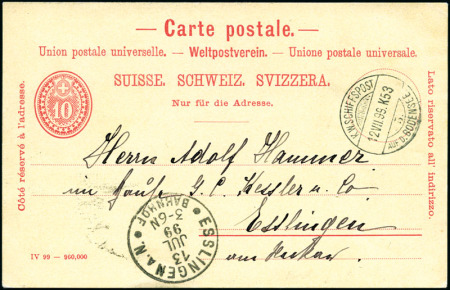 Carte postale.
Union postale universelle. – Weltpostverein. – Unione postale universale.
SUISSE. SCHWEIZ. SVIZZERA.
Nur für die Adresse.
Côté réservé à l'adresse.
10
Lato riservato all' indirizzo.
K.W. SCHIFFSPOST
12 VII 99. K53
AUF D. BODENSEE
Herrn Adolf Hammer
im Hause J. C. Kessler u. Co
Esslingen
am Neckar
ESSLINGEN A. N.
13
JUL
99
3-6N
BAHNHOF
IV 99 – 260,000